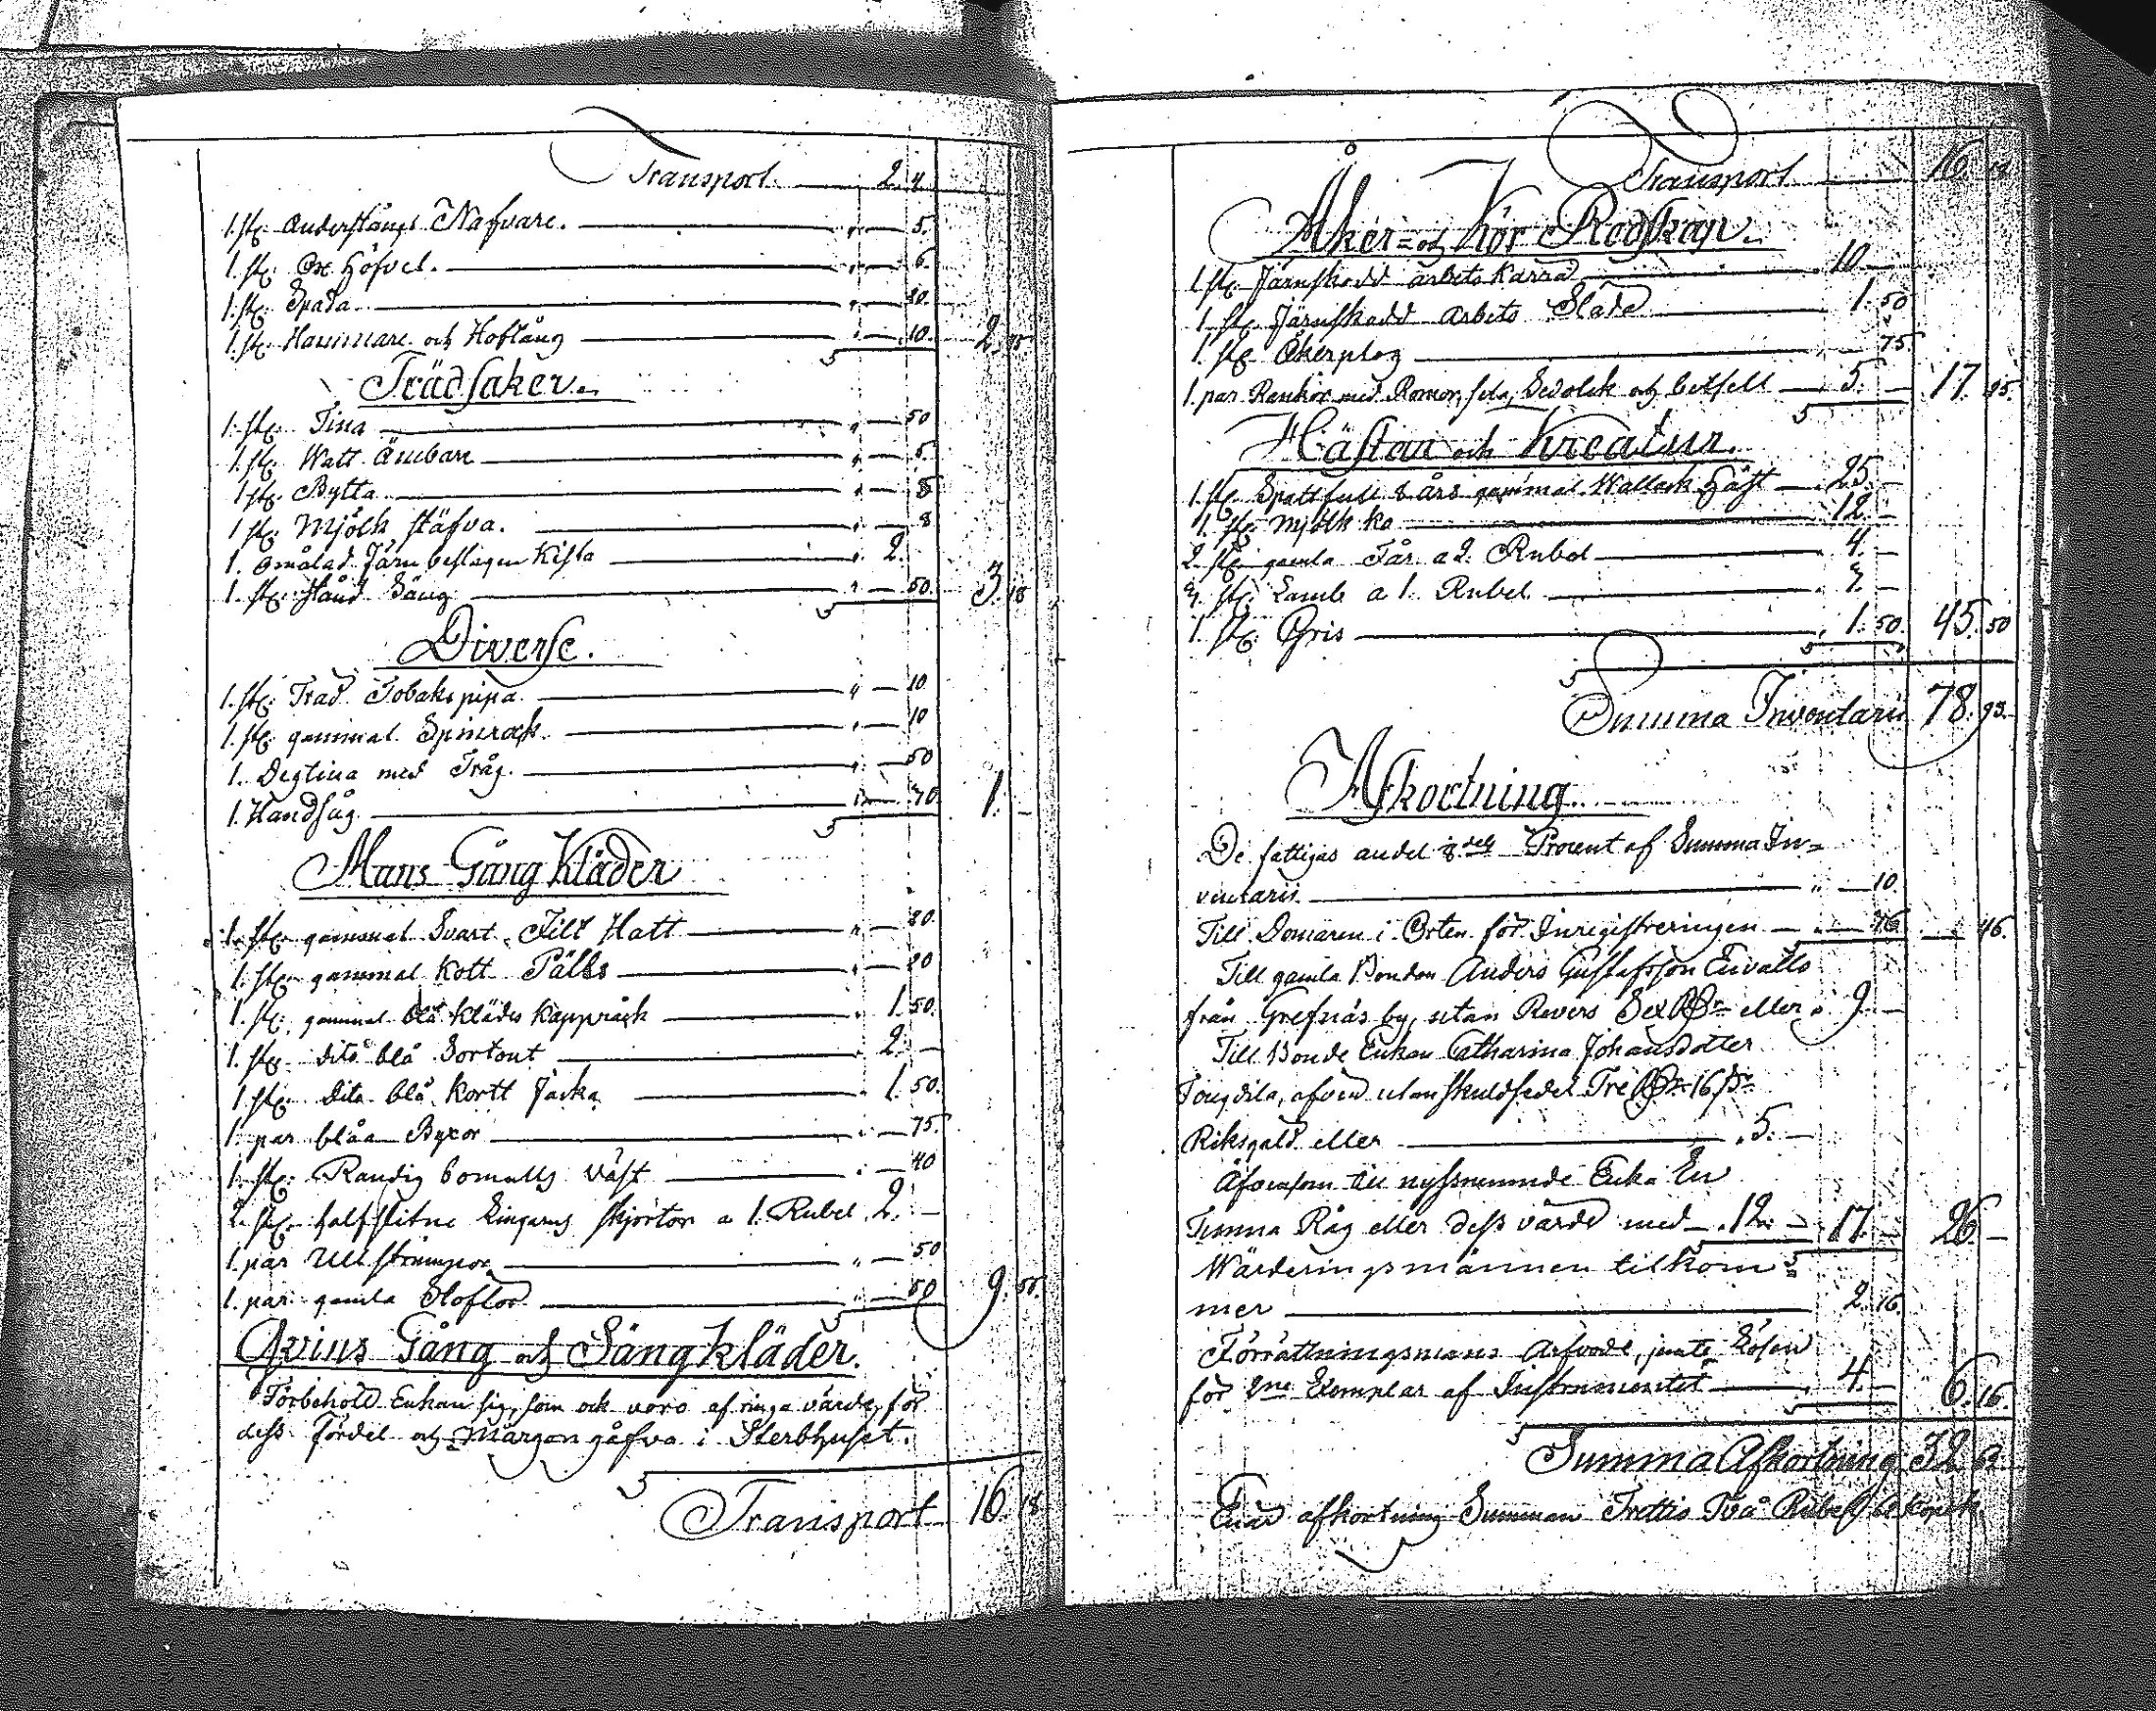 Transport 2. 4.
1. st: Anderstångs Nafvare. " 5.
1. st: Ox Höfvel. " 6.
1. st: Spada " 20.
1. st: Hammare och Hoftång " 10. 2.
Trädsaker.
1. st: Tina " 50
1. st: Watt Ämbare " 5.
1 st: Bytta " 5
1 st: Mjölk stäfva. " 8
1. Omålad Järn beslagen Kista " 2.
1. st: Säng " 50. 3. 18
Diverse.
1. st: Träd Tobaks pipa " 10
1. st: gammal Spinrock. " 10
1. Degtina med Tråg. " 50
1. Handsåg " 1. –
Mans Gång Kläder
1. st: gammal Svart Filt Hatt " 20
1. st: gammal kott Pälts " 20
1. st: gammal blå klädes kappråck 1. 50.
1. st: dito blå Sortout 2. –
1 st: dito blå kortt Jacka 1. 50.
1. par blåa Byxor " 75.
1. st: Randig bomulls väst " 40
2. st: halfslitne Lingarns skjortor a 1. Rubel 2. –
1. par Ull strumpor " 50
1. par gamla Stöflor " 50 9. 55.
Qvins Gång och Sängkläder.
Förbehöld Enkan sig, som ock voro af ringa värde, för
dess Fördel och Märgon gåfva i Sterbhuset.
Transport 16. 18
Transport 16. 18
Åker- och Kör Redskap.
1. st: Järnskodd arbets Kärra 10. –
1. st: Järnskodd Arbets Släde 1. 50
1. st: Åkerplog " 75.
1. par Rankor med Romor, sela, Sedolck och betsell 5. – 17. 25.
Hästar och Kreatur.
1. st: 8 års gammal Wallack Häst 25. –
1. st: Mjölk ko 12. –
2 st: gamla Får a 2. Rubel 4. –
3. st: Lamb a 1. Rubel 3. –
1. st: Gris 1. 50. 45. 50
Summa Inventarii 78. 93.
Afkortning.
De fattigas andel 8dels Procent af Summa In-
ventarii " 10.
Till Domaren i Orten för Inregistreringen " 36 46.
Till gamla Bonden Anders Gustafsson Envalls
från Grefnäs by, utan Revers Sex eller 9. –
Till Bonde Enkan Catharina Johansdotter
afven utan skuldsedel Tre 16
Riksgäld eller 5. –
Äfvensom till nyssnemnde Enka En
Tunna Råg eller dess värde med 12. – 17. – 26. –
Wärderingsmännen tilkom-
mer 2. 16.
Förrättningsmans Arfvode, jemte Lösen
för 2ne Exemplar af Instrumentet 4. – 6. 16.
Summa Afkortning 32. 62
afkortning Summan Trettio Två Rubel 62 kopek.